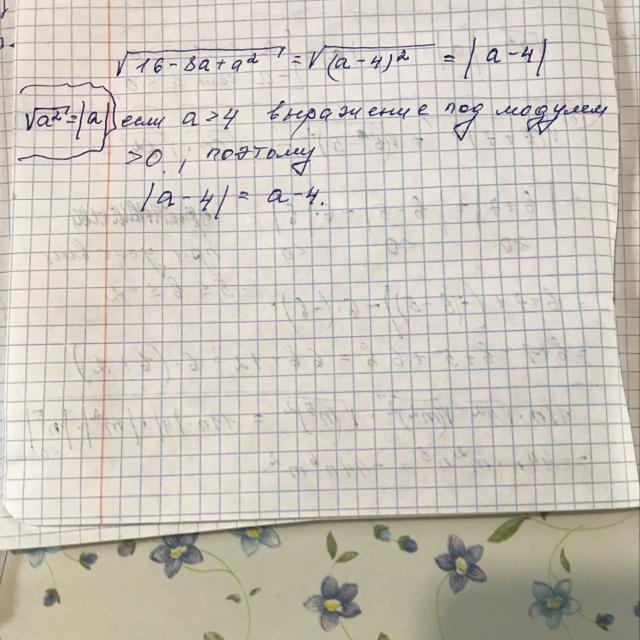 √16-8a+a² = √(a-4)² = |a-4|
√a²=|a| если a>4 выражение под модулем
>0, поэтому
|a-4| = a-4.